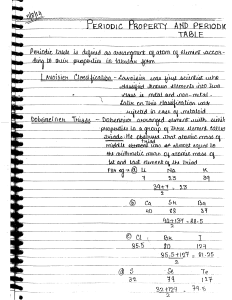 PERIODIC PROPERTY AND PERIODIC
TABLE
Periodic table is defined as arrangement of atom of element accor-
ding to their properties in tabular form
Lavoisier Classification - Lavoisier was first scientist who
classified known elements into two
class is metal and non-metal.
Later on this classification was
rejected in case of metalloid
Dobereiner Triads - Dobereiner arranged element with simil
properties in a group of three element called
Triads. He observed that atomic mass of
middle element was almost equal to
the arithmetic mean of atomic mass of
1st and last element of the Triad
For eg → ⓐ Li Na K
7 23 39
39+7 = 23
2
ⓑ Ca
40 88 137
40+137 = 88.5
2
ⓒ Cl : Br I
35.5 80 127
35.5+127 = 81.25
2
ⓓ S Se Te
32 79 127
32+127 = 79.5
2